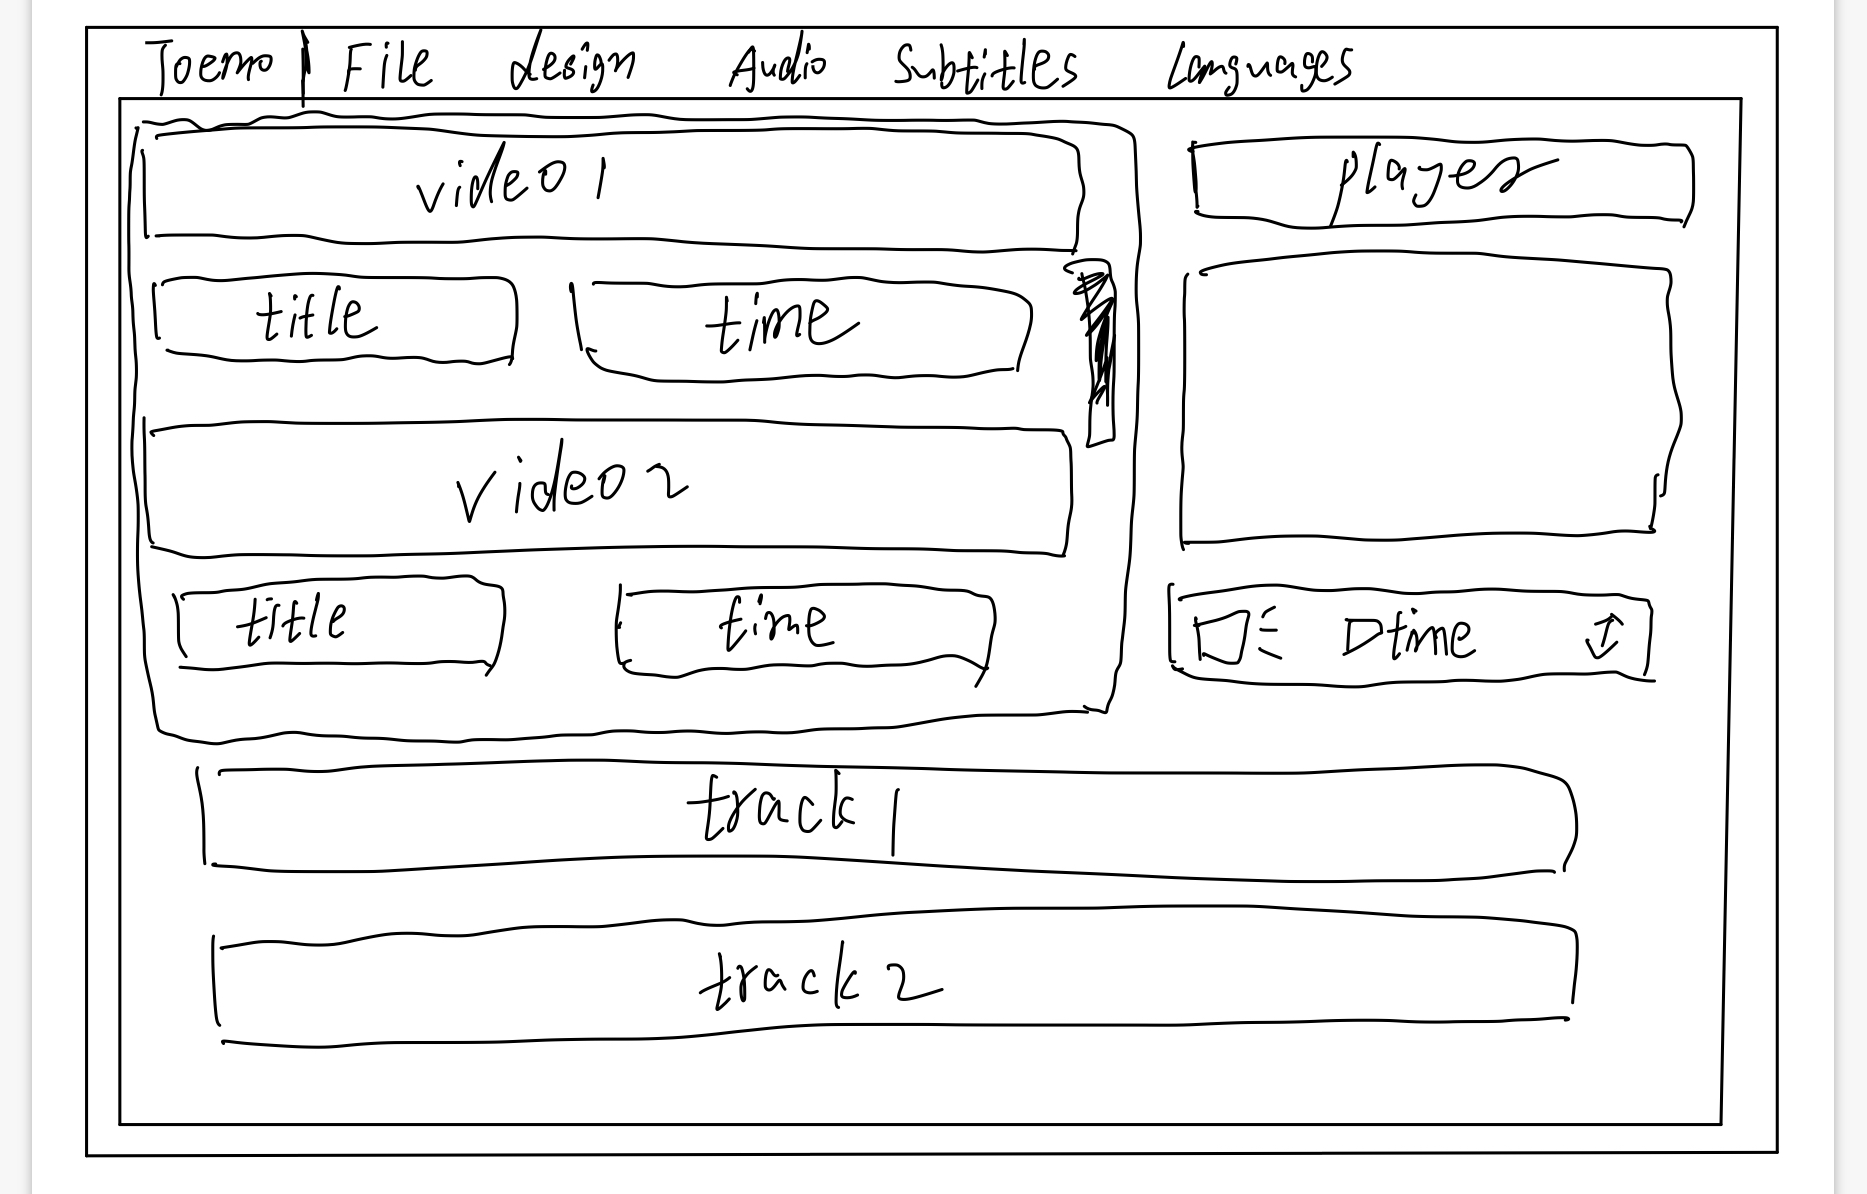 Toemo File design Audio Subtitles Languages
video 1
player
title time
video 2
title time
time
track 1
track 2